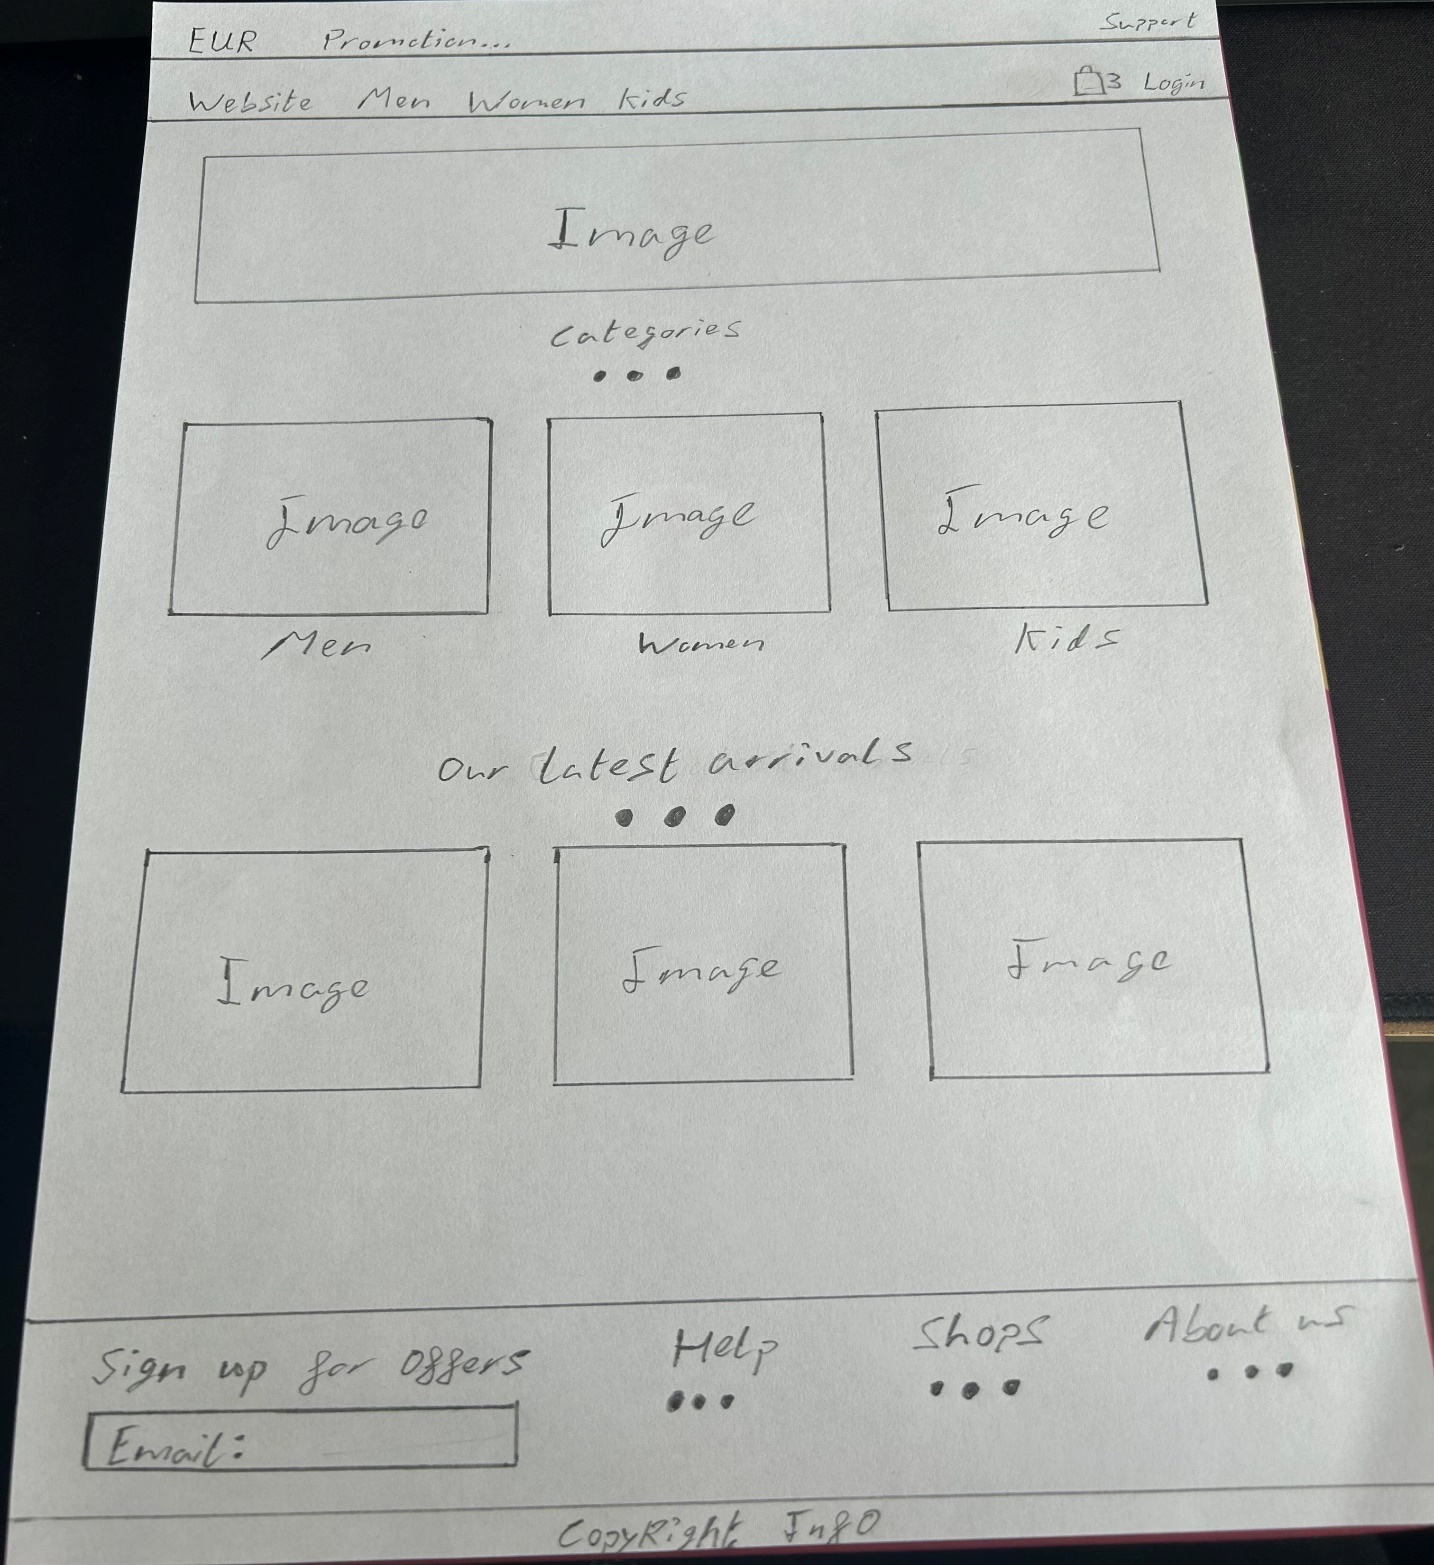 EUR Promotion... Support
Website Men Women Kids 3 Login
Image
Categories
Image Image Image
Men Women Kids
Our latest arrivals
Image Image Image
Sign up for offers Help Shops About us
Email:
CopyRight Info